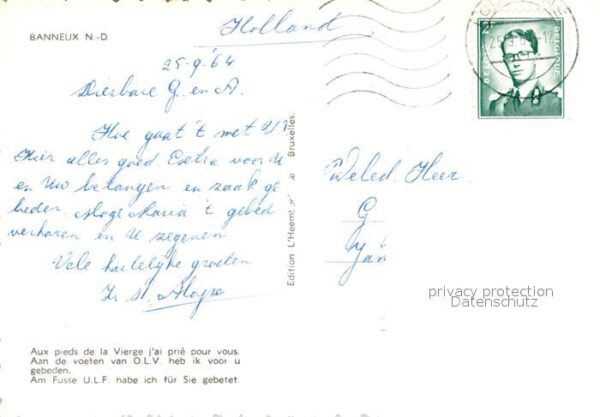 BANNEUX N.-D.
Holland
25-9-'64
Dierbare G. en A.
Hoe gaat 't met U?
Hier alles goed Extra voor U
en Uw belangen en zaak ge
beden. Moge Maria 't gebed
verhoren en U zegenen
Vele hartelijke groeten
Zr. M. Aloyse
Aux pieds de la Vierge j'ai prié pour vous.
Aan de voeten van O.L.V. heb ik voor u
gebeden.
Am Fusse U.L.F. habe ich für Sie gebetet.
Edition L'Hoemt Bruxelles.
2F
BELGIE BELGIQUE
Weled. Heer
G
privacy protection
Datenschutz